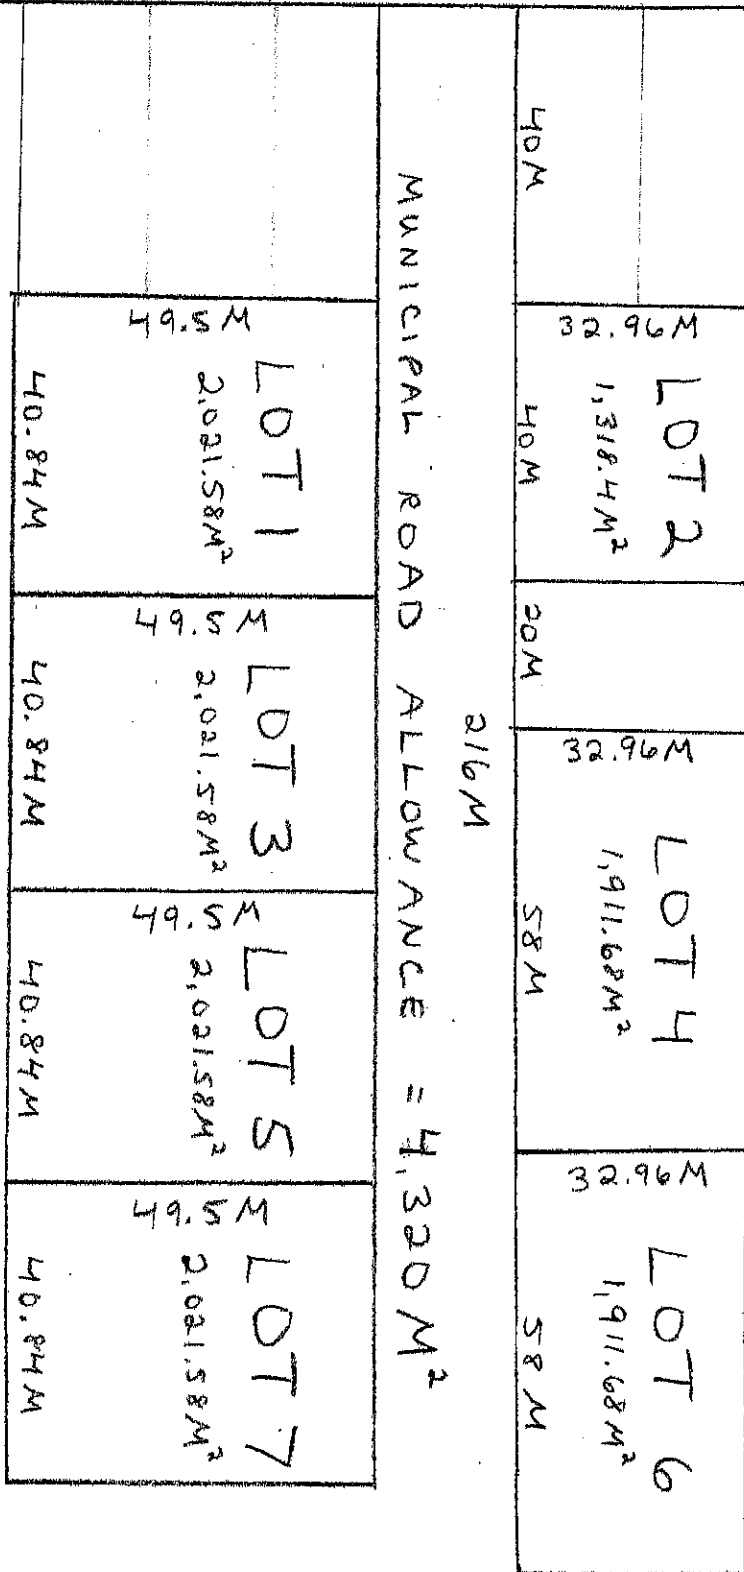 32.96M
LOT 2
1,318.4M²
32.96M
LOT 4
1,911.68M²
32.96M
LOT 6
1,911.68M²
40M
40M
20M
58M
58M
216M
MUNICIPAL ROAD ALLOWANCE = 4,320M²
49.5M
LOT 1
2,021.58M²
40.84M
49.5M
LOT 3
2,021.58M²
40.84M
49.5M
LOT 5
2,021.58M²
40.84M
49.5M
LOT 7
2,021.58M²
40.84M